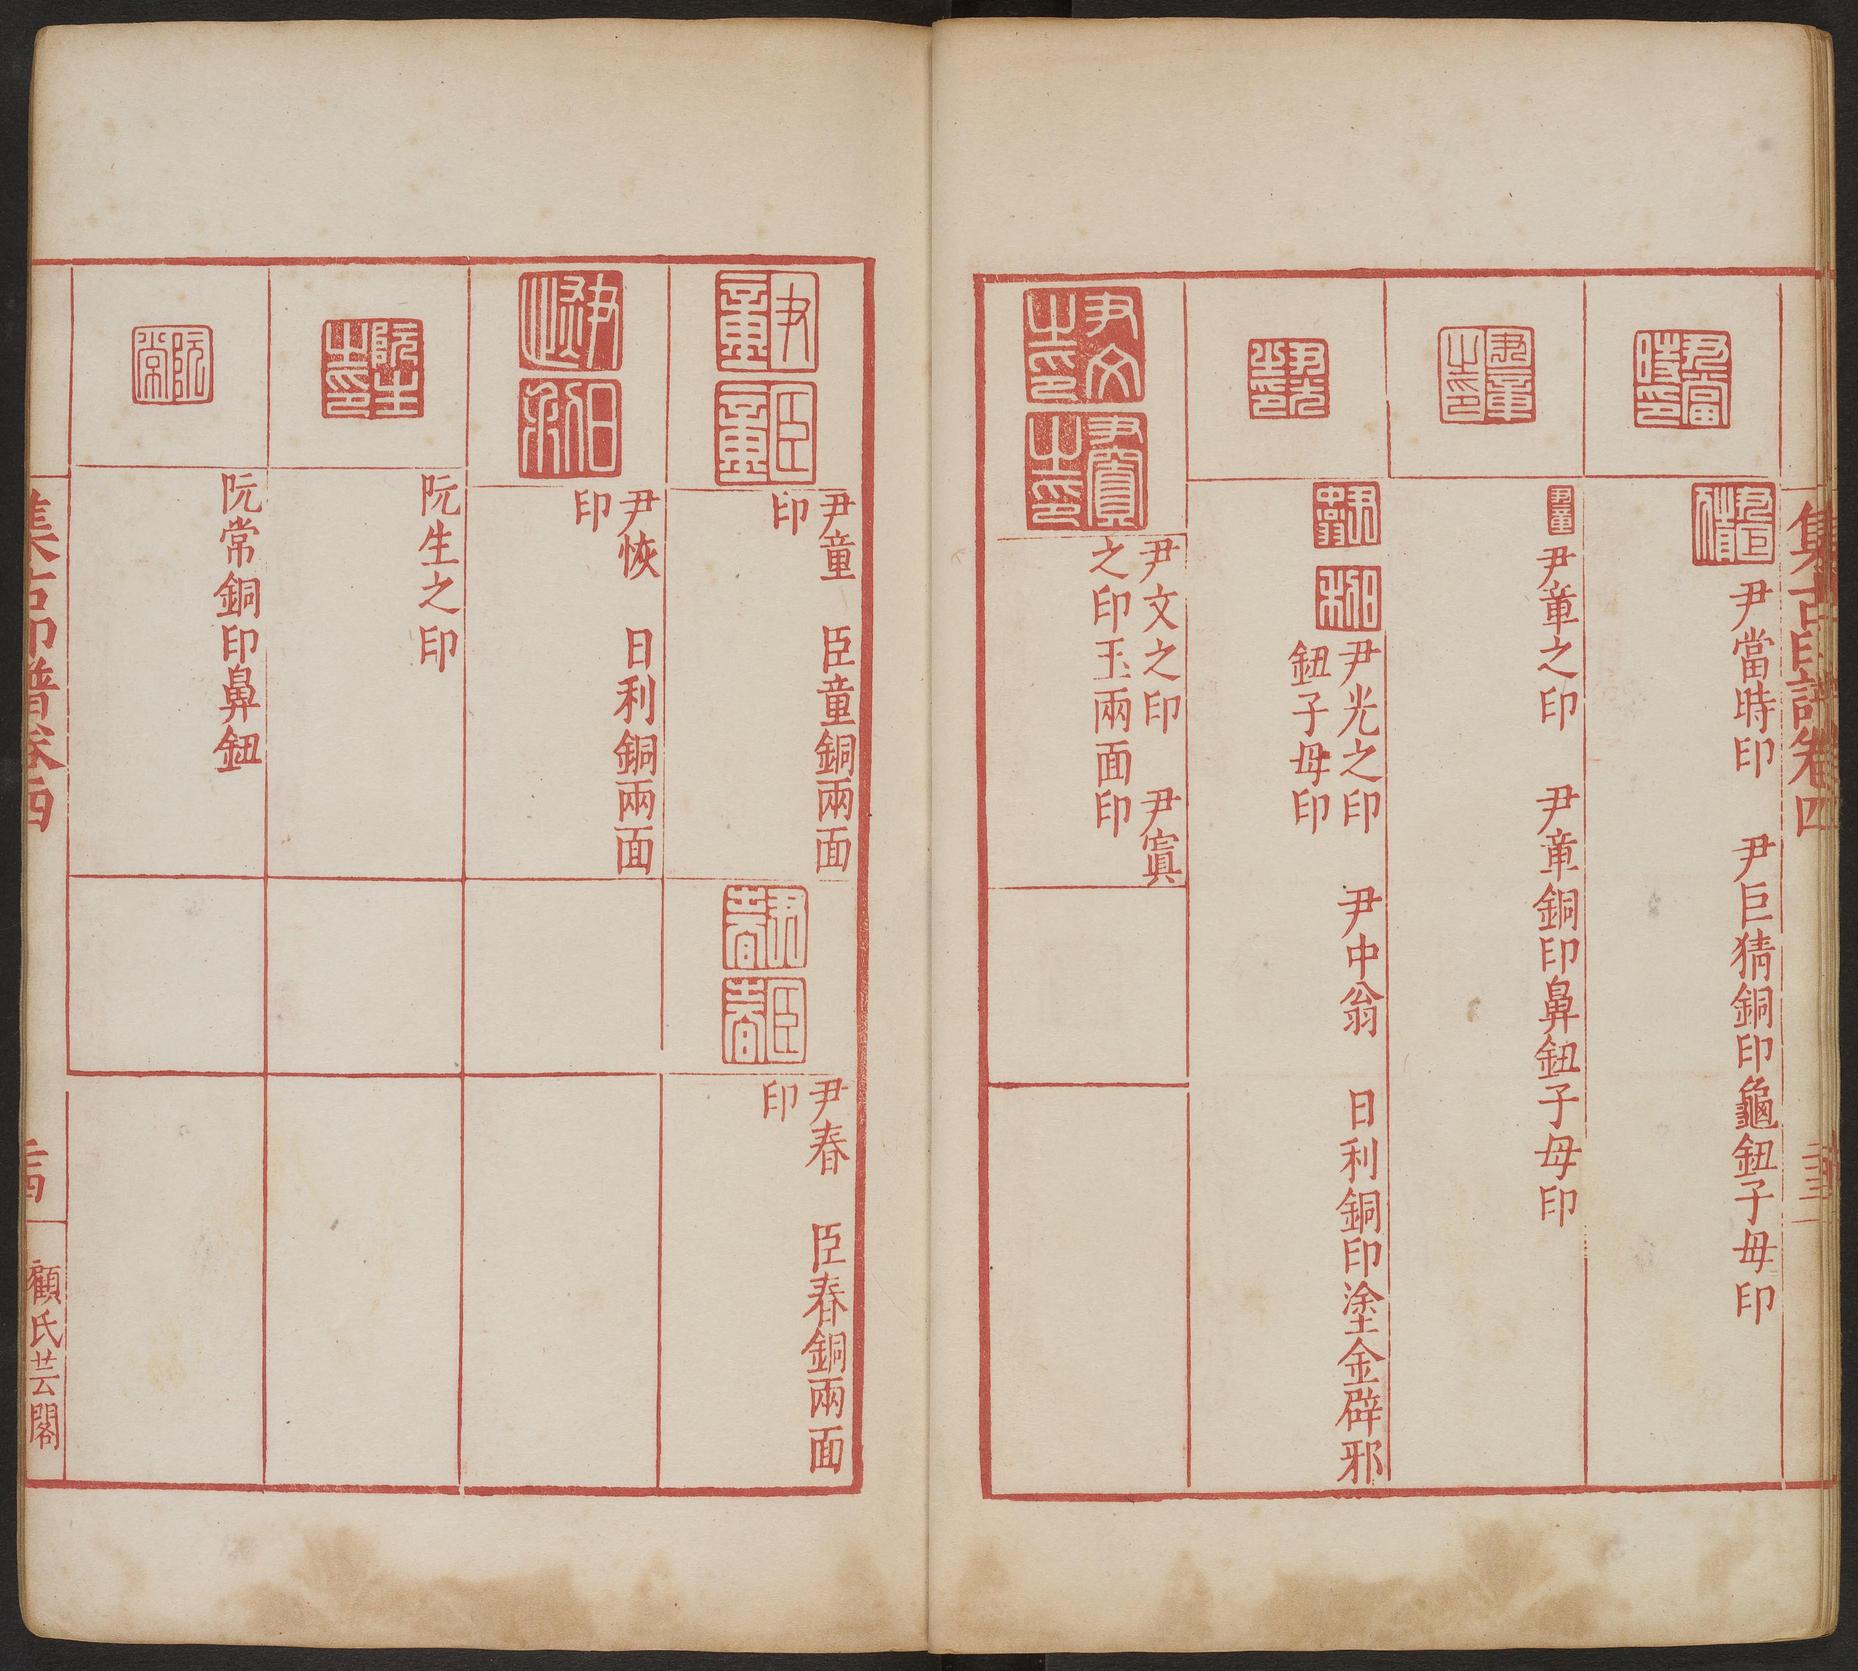 集古印譜卷四
尹當時印 尹巨猜銅印龜鈕子母印
尹章之印 尹章銅印鼻鈕子母印
尹光之印 尹中翁 日利銅印塗金辟邪
鈕子母印
尹文之印 尹寘
之印玉兩面印
尹童 臣童銅兩面
印
尹春 臣春銅兩面
印
尹恢 日利銅兩面
印
阮生之印
阮常銅印鼻鈕
集古印譜卷四
顧氏芸閣